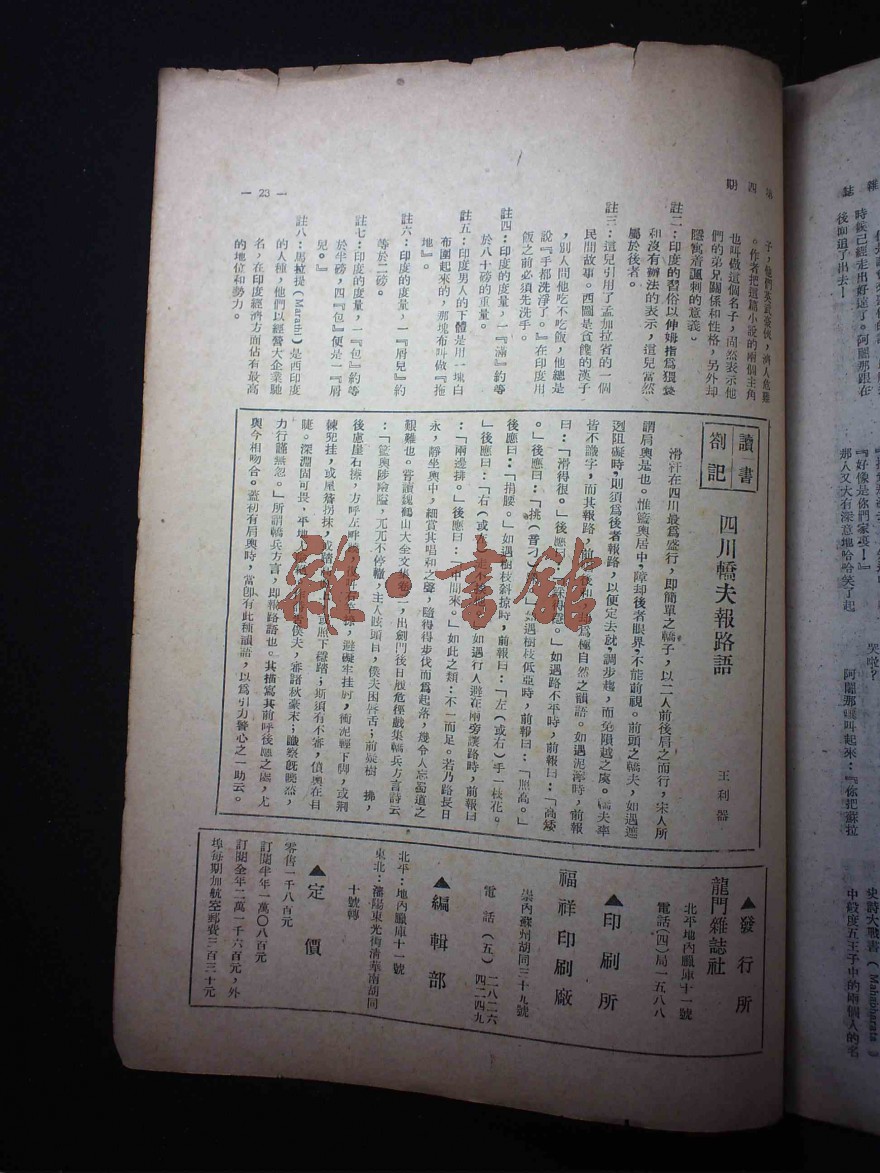 第四期
— 23 —
子，他們英武豪俠，濟人危難
。作者把這篇小說的兩個主角
也叫做這個名子，固然表示他
們的弟兄關係和性格，另外却
隱寓着諷刺的意義。
註二：印度的習俗以伸姆指爲
和沒有辦法的表示，這兒當然
屬於後者。
註三：這兒引用了孟加拉省的一個
民間故事。西圖是貪饞的漢子
，別人問他吃不吃飯，他總是
說『手都洗淨了。』在印度用
飯之前必須先洗手。
註四：印度的度量，一『滿』約等
於八十磅的重量。
註五：印度男人的下體是用一塊白
布圍起來的，那塊布叫做『拖
地』。
註六：印度的度量，一『屑兒』約
等於二磅。
註七：印度的度量，一『包』約等
於半磅，四『包』便是一『屑
兒。』
註八：馬拉提（Marathi）是西印度
的人種，他們以經營大企業馳
名，在印度經濟方面佔有最高
的地位和勢力。
讀書劄記
四川轎夫報路語
王利器
滑竿在四川最爲盛行，即簡單之轎子，以二人前後肩之而行，宋人所
謂肩輿是也。惟籃輿居中，障却後者眼界，不能前視。前頭之轎夫，如遇遮
迾阻礙時，則須爲後者報路，以便定去就，調步趨，而免隕越之虞。轎夫率
皆不識字，而其報路，前後爲極自然之韻語。如遇泥濘時，前報
曰：「滑得很。」後應曰：「得穩。」如遇路不平時，前報曰：「高矮
。」後應曰：「挑（音刁）。」如遇樹枝低亞時，前報曰：「照高。」
後應曰：「揹腰。」如遇樹枝斜掠時，前報曰：「左（或右）手一枝花。
」後應曰：「右（或左）走不。」如遇行人避在兩旁讓路時，前報曰
：「兩邊排。」後應曰：「中間來。」如此之類，不一而足。若乃路長日
永，靜坐輿中，細賞其唱和之聲，隨得得步伐而爲起落，幾令人忘蜀道之
艱難也。嘗讀魏鶴山大全文集，出劍門後日履危徑戲集轎兵方言詩云
：「籃輿陟險隘，兀兀不停轣，主人眩頭目，僕夫困唇舌；前疑樹拂，
後慮崖石擦，方呼左畔，避礙牢挂肘，衝泥輕下脚，或荆
練兜挂，或屋簷拐抹，或踏高，或照下穩踏；斯須有不審，僨輿在目
睫。深淵固可畏，平地僕夫，審諸秋豪末；識察旣曉然，
力行謹無忽。」所謂轎兵方言，即報路語也。其描寫其前呼後應之處，尤
與今相吻合。蓋初有肩輿時，當卽有此種韻語，以爲引力警心之一助云。
▲發行所
龍門雜誌社
北平地內臘庫十一號
電話（四）局一五八八
▲印刷所
福祥印刷廠
崇內蘇州胡同三十九號
電話（五）二八二六
四二四九
▲編輯部
北平：地內臘庫十一號
東北：瀋陽東光街清華南胡同
十號轉
▲定價
零售一千八百元
訂閱半年一萬〇八百元
訂閱全年二萬一千六百元，外
埠每期加航空郵費三百三十元
雜誌
時候已經走出好遠了。阿闍那跟在
後面追了出去！
『好像是你們家裏！』
那人又大有深意地哈哈笑了起
哭啦？
阿闍那叫起來：『你把蘇拉
史詩大戰書（Mahabharata）
中般度五王子中的兩個人的名
雜·書館